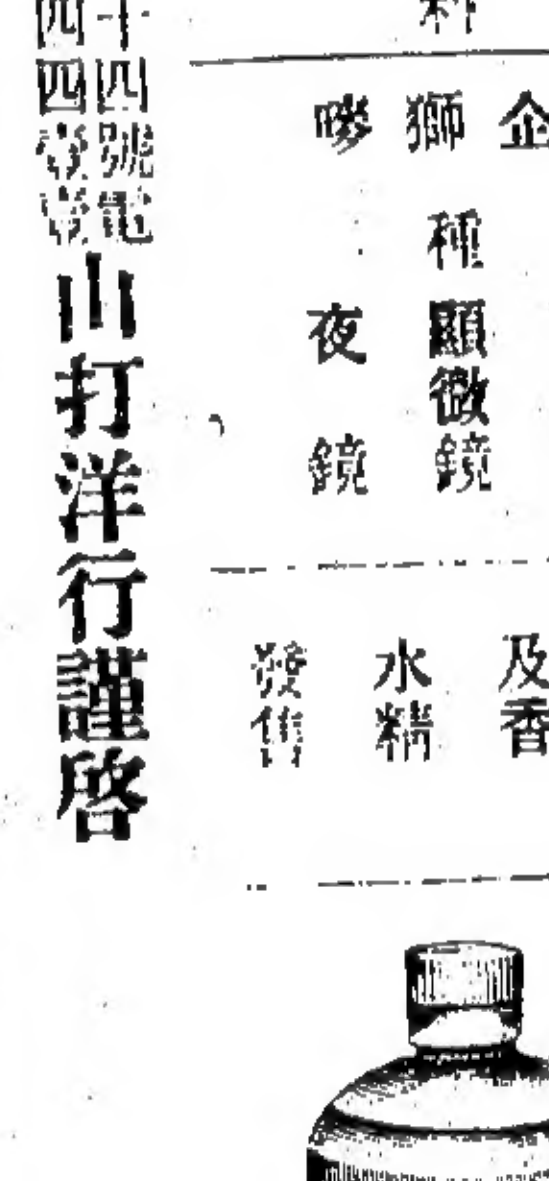 料
企
獅
嚟
種
顯微鏡
夜鏡
及香
水精
發售
十四號電
四四壹壹
山打洋行謹啓